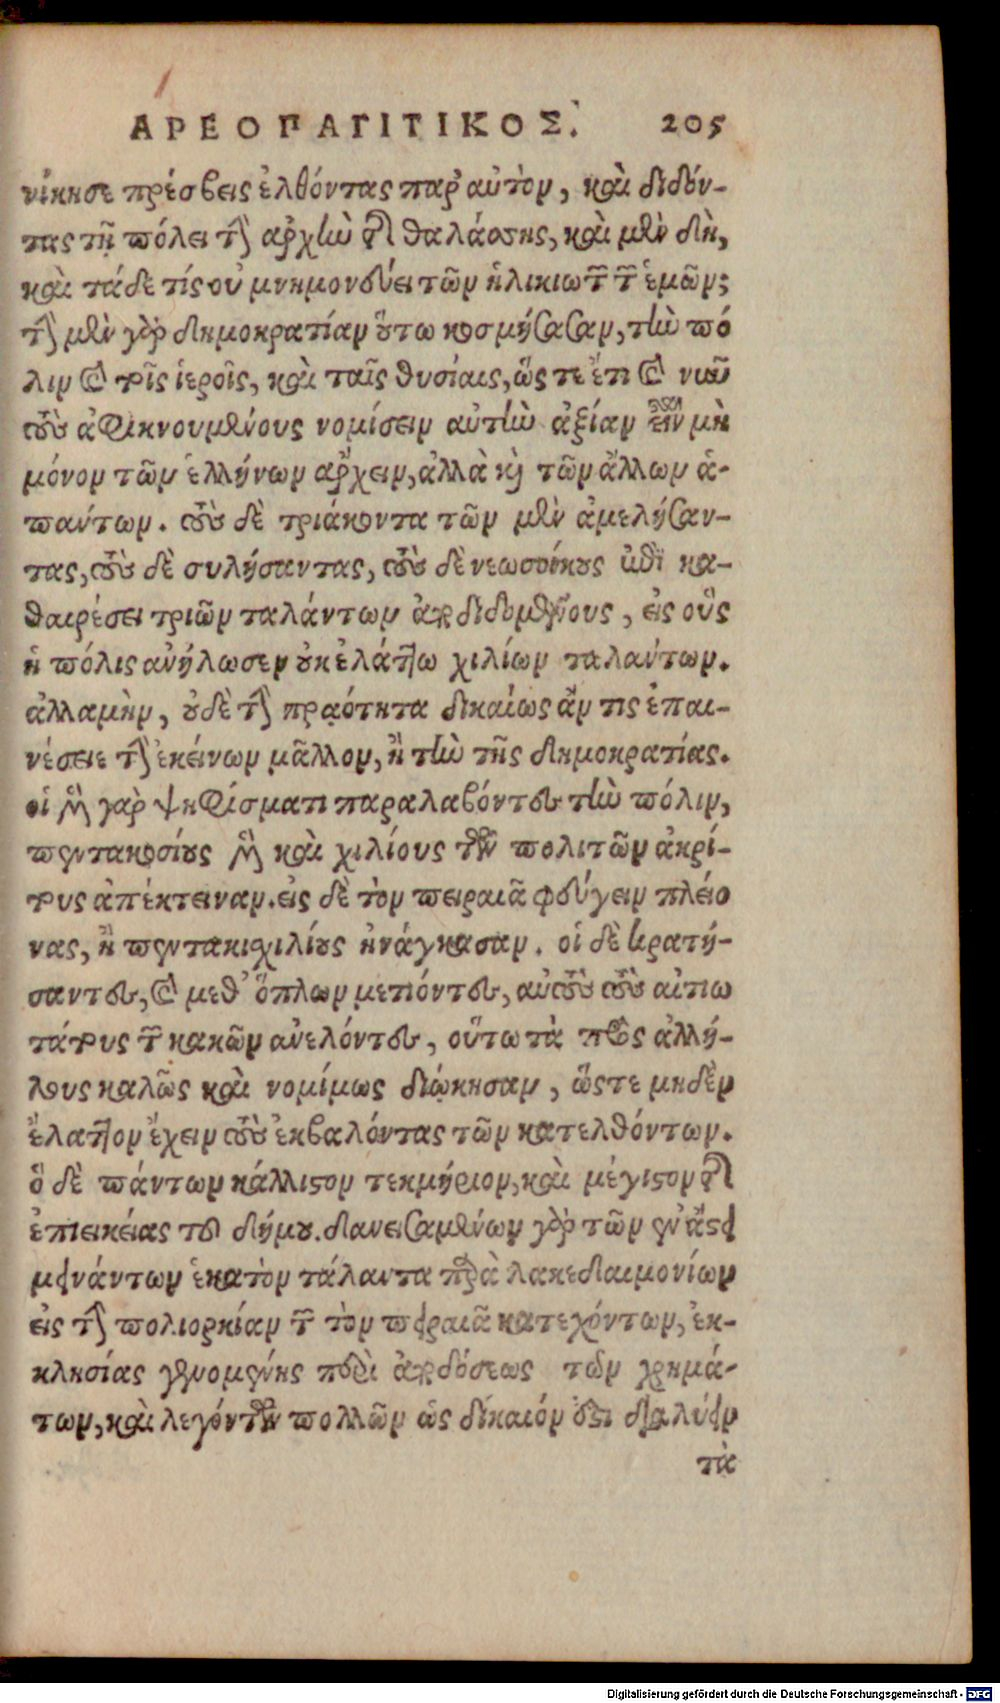 ΑΡΕΟΠΑΓΙΤΙΚΟΣ. 205
νίκησε πρέσβεις ἐλθόντας παρ' αὐτὸν, καὶ διδόν-
τας τῇ πόλει τὴν ἀρχὴν τῆς θαλάσσης, καὶ μὲν δὴ,
καὶ τάδε τίς οὐ μνημονεύει τῶν ἡλικιωτῶν τῶν ἐμῶν;
τὴν μὲν γὰρ δημοκρατίαν οὕτω κοσμήσασαν, τὴν πό
λιν καὶ τοῖς ἱεροῖς, καὶ ταῖς θυσίαις, ὥς τε ἔτι καὶ νῦν
τοὺς ἀφικνουμένους νομίσειν αὐτὴν ἀξίαν εἶναι μὴ
μόνον τῶν ἑλλήνων ἄρχειν, ἀλλὰ καὶ τῶν ἄλλων ἁ-
πάντων. τοὺς δὲ τριάκοντα τῶν μὲν ἀμελήσαν-
τας, τοὺς δὲ συλήσαντας, τοὺς δὲ νεωσοίκους ἐπὶ κα-
θαιρέσει τριῶν ταλάντων ἀποδιδομένους, εἰς οὓς
ἡ πόλις ἀνήλωσεν οὐκ ἐλάττω χιλίων ταλάντων.
ἀλλαμὴν, οὐδὲ τὴν πρᾳότητα δικαίως ἄν τις ἐπαι-
νέσειε τὴν ἐκείνων μᾶλλον, ἢ τὴν τῆς δημοκρατίας.
οἱ μὲν γὰρ ψηφίσματι παραλαβόντες τὴν πόλιν,
πεντακοσίους μὲν καὶ χιλίους τῶν πολιτῶν ἀκρί-
τους ἀπέκτειναν. εἰς δὲ τὸν πειραιᾶ φεύγειν πλείο
νας, ἢ πεντακιχιλίους ἠνάγκασαν. οἱ δὲ κρατή-
σαντες, καὶ μεθ' ὅπλων μετιόντες, αὐτοὺς τοὺς αἰτιω
τάτους τῶν κακῶν ἀνελόντες, οὕτω τὰ πρὸς ἀλλή-
λους καλῶς καὶ νομίμως διῴκησαν, ὥστε μηδὲν
ἔλαττον ἔχειν τοὺς ἐκβαλόντας τῶν κατελθόντων.
ὃ δὲ πάντων κάλλιστον τεκμήριον, καὶ μέγιστον τῆς
ἐπιεικείας τοῦ δήμου. δανεισαμένων γὰρ τῶν ἐν ἄστει
μεινάντων ἑκατὸν τάλαντα παρὰ λακεδαιμονίων
εἰς τὴν πολιορκίαν τῶν τὸν πειραιᾶ κατεχόντων, ἐκ-
κλησίας γενομένης περὶ ἀποδόσεως τῶν χρημά-
των, καὶ λεγόντων πολλῶν ὡς δίκαιόν ἐστι διαλύειν
τὰ
Digitalisierung gefördert durch die Deutsche Forschungsgemeinschaft - DFG